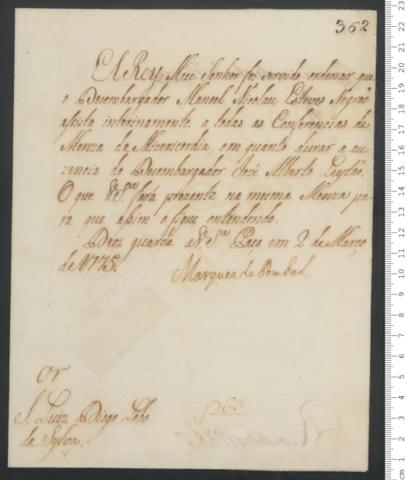 362.
El Rey Meu Senhor foi servido ordenar, que
o Dezembargador Manoel Nicolau Esteves Negrão
assista interinamente a todas as Conferencias da
Menza da Mizericordia, em quanto durar a au-
zencia do Dezembargador José Alberto Leytão.
O que V. S.ª fará prezente na mesma Menza pa-
ra que assim o fique entendendo.
Deos guarde a V. S.ª Paço em 2 de Março
de 1775.
Marquez de Pombal
Sr.
S. Luiz Diogo Lobo
da Sylva.
p 63